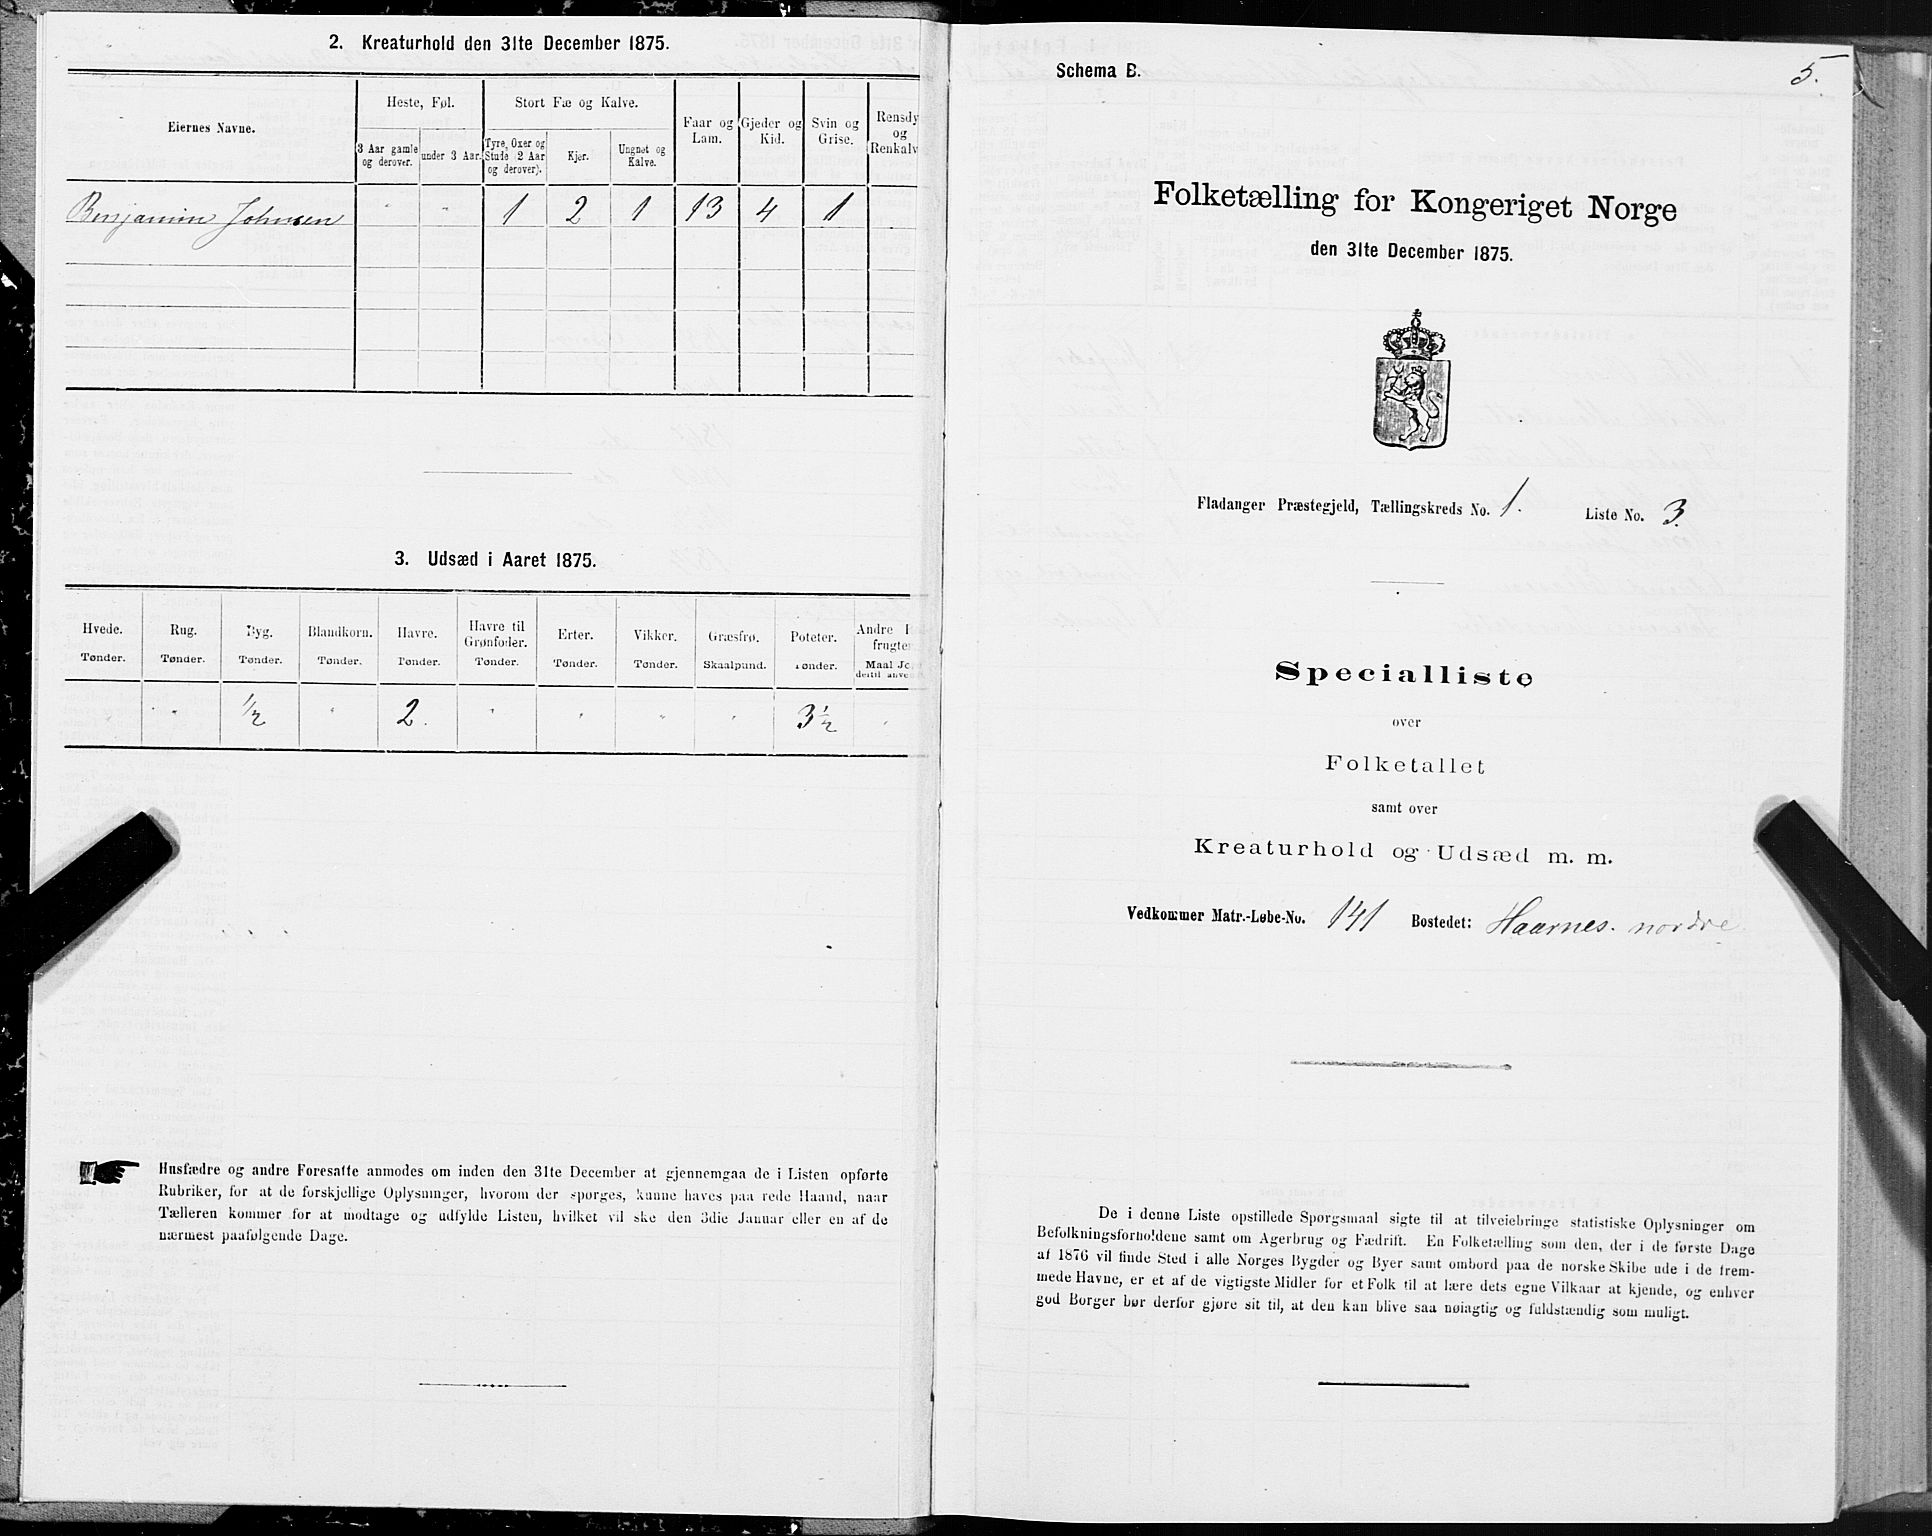 2. Kreaturhold den 31te December 1875.
Eiernes Navne.
Heste, Føl.
Stort Fæ og Kalve.
Faar og Lam.
Gjeder og Kid.
Svin og Grise.
Rensdy
og
Renkalv
3 Aar gamle og derover.
under 3 Aar.
Tyre, Oxer og Stude (2 Aar og derover).
Kjør.
Ungnøt og Kalve.
Benjamin Johnsen " " 1 2 1 13 4 1
3. Udsæd i Aaret 1875.
Hvede. Rug. Byg. Blandkorn. Havre. Havre til Grønfoder. Erter. Vikker. Græsfrø. Poteter. Andre
frugter
Tønder. Tønder. Tønder. Tønder. Tønder. Tønder. Tønder. Tønder. Skaalpund. Tønder. Maal
dertil
" 1/2 " 2. " " " " 3 1/2
Husfædre og andre Foresatte anmodes om inden den 31te December at gjennemgaa de i Listen opførte
Rubriker, for at de forskjellige Oplysninger, hvorom der spørges, kunne haves paa rede Haand, naar
Tælleren kommer for at modtage og udfylde Listen, hvilket vil ske den 3die Januar eller en af de
nærmest paafølgende Dage.
Schema B.
5.
Folketælling for Kongeriget Norge
den 31te December 1875.
Fladanger Præstegjeld, Tællingskreds No. 1. Liste No. 3.
Specialliste
over
Folketallet
samt over
Kreaturhold og Udsæd m. m.
Vedkommer Matr.-Løbe-No. 141 Bostedet: Haarnes. nordre
De i denne Liste opstillede Spørgsmaal sigte til at tilveiebringe statistiske Oplysninger om
Befolkningsforholdene samt om Agerbrug og Fædrift. En Folketælling som den, der i de første Dage
af 1876 vil finde Sted i alle Norges Bygder og Byer samt ombord paa de norske Skibe ude i de frem-
mede Havne, er et af de vigtigste Midler for et Folk til at lære dets egne Vilkaar at kjende, og enhver
god Borger bør derfor gjøre sit til, at den kan blive saa nøiagtig og fuldstændig som muligt.